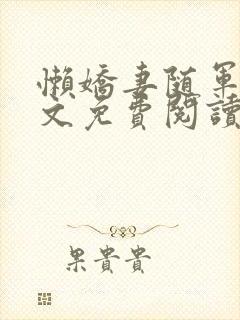 懶嬌妻随军
文免費閱讀
果貴貴